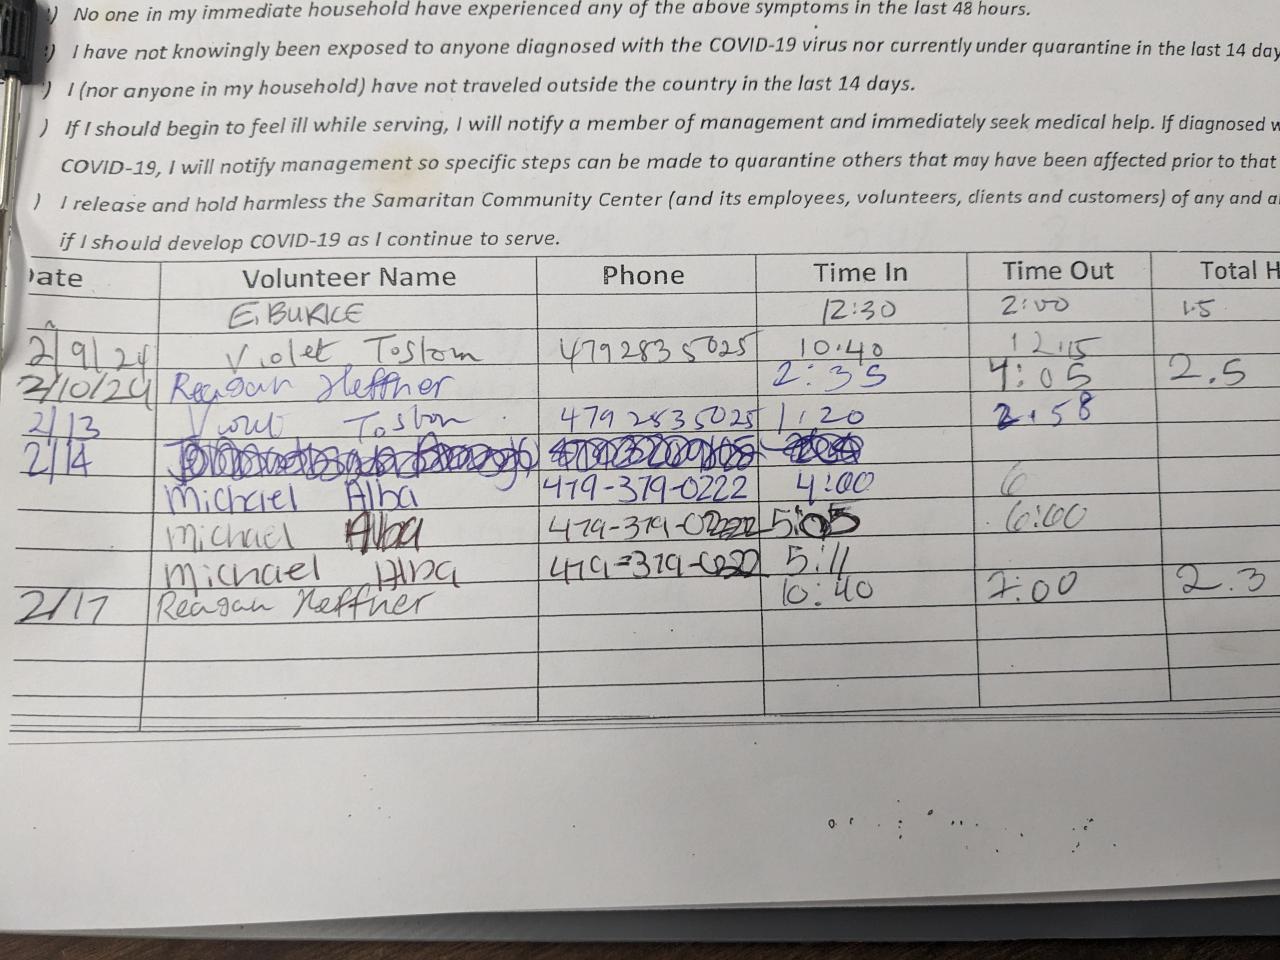 No one in my immediate household have experienced any of the above symptoms in the last 48 hours.
I have not knowingly been exposed to anyone diagnosed with the COVID-19 virus nor currently under quarantine in the last 14 day
) I (nor anyone in my household) have not traveled outside the country in the last 14 days.
) If I should begin to feel ill while serving, I will notify a member of management and immediately seek medical help. If diagnosed w
COVID-19, I will notify management so specific steps can be made to quarantine others that may have been affected prior to that
) I release and hold harmless the Samaritan Community Center (and its employees, volunteers, clients and customers) of any and a
if I should develop COVID-19 as I continue to serve.
ate Volunteer Name Phone Time In Time Out Total H
E. BURKE 12:30 2:00 1.5
2/9/24 Violet 479 283 5025 10:40 12:15
2/10/24 Reagan Heffner 2:35 4:05 2.5
2/13 479 283 5025 1:20 2:58
2/14
Michael Alba 479-379-0222 4:00 6
Michael Alba 5:05 6:00
Michael Alba 5:11
2/17 Reagan Heffner 10:40 2.3